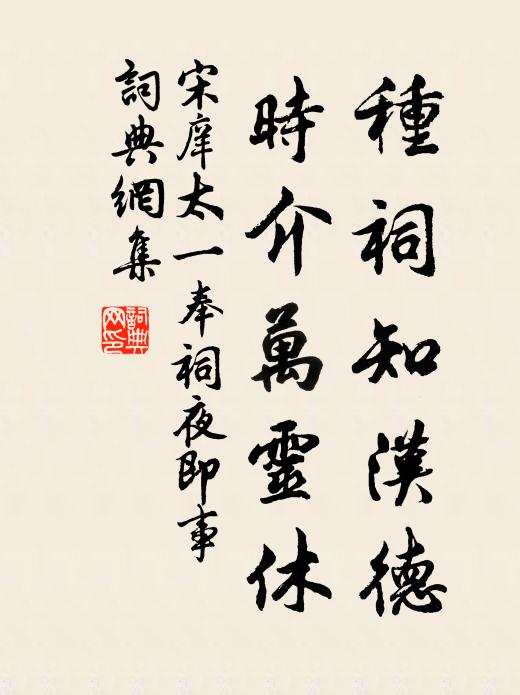 種祠知漢德
時介萬靈休
宋庠太一奉祠夜即事
詞典網集
詞典网印